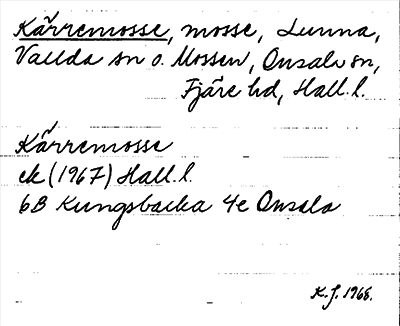 Kärremosse, mosse, Lunna,
Vallda sn o. Mossen, Onsala sn,
Fjäre hd, Hall. l.
Kärremosse
ek (1967) Hall. l.
6B Kungsbacka 4e Onsala
K. J. 1968.